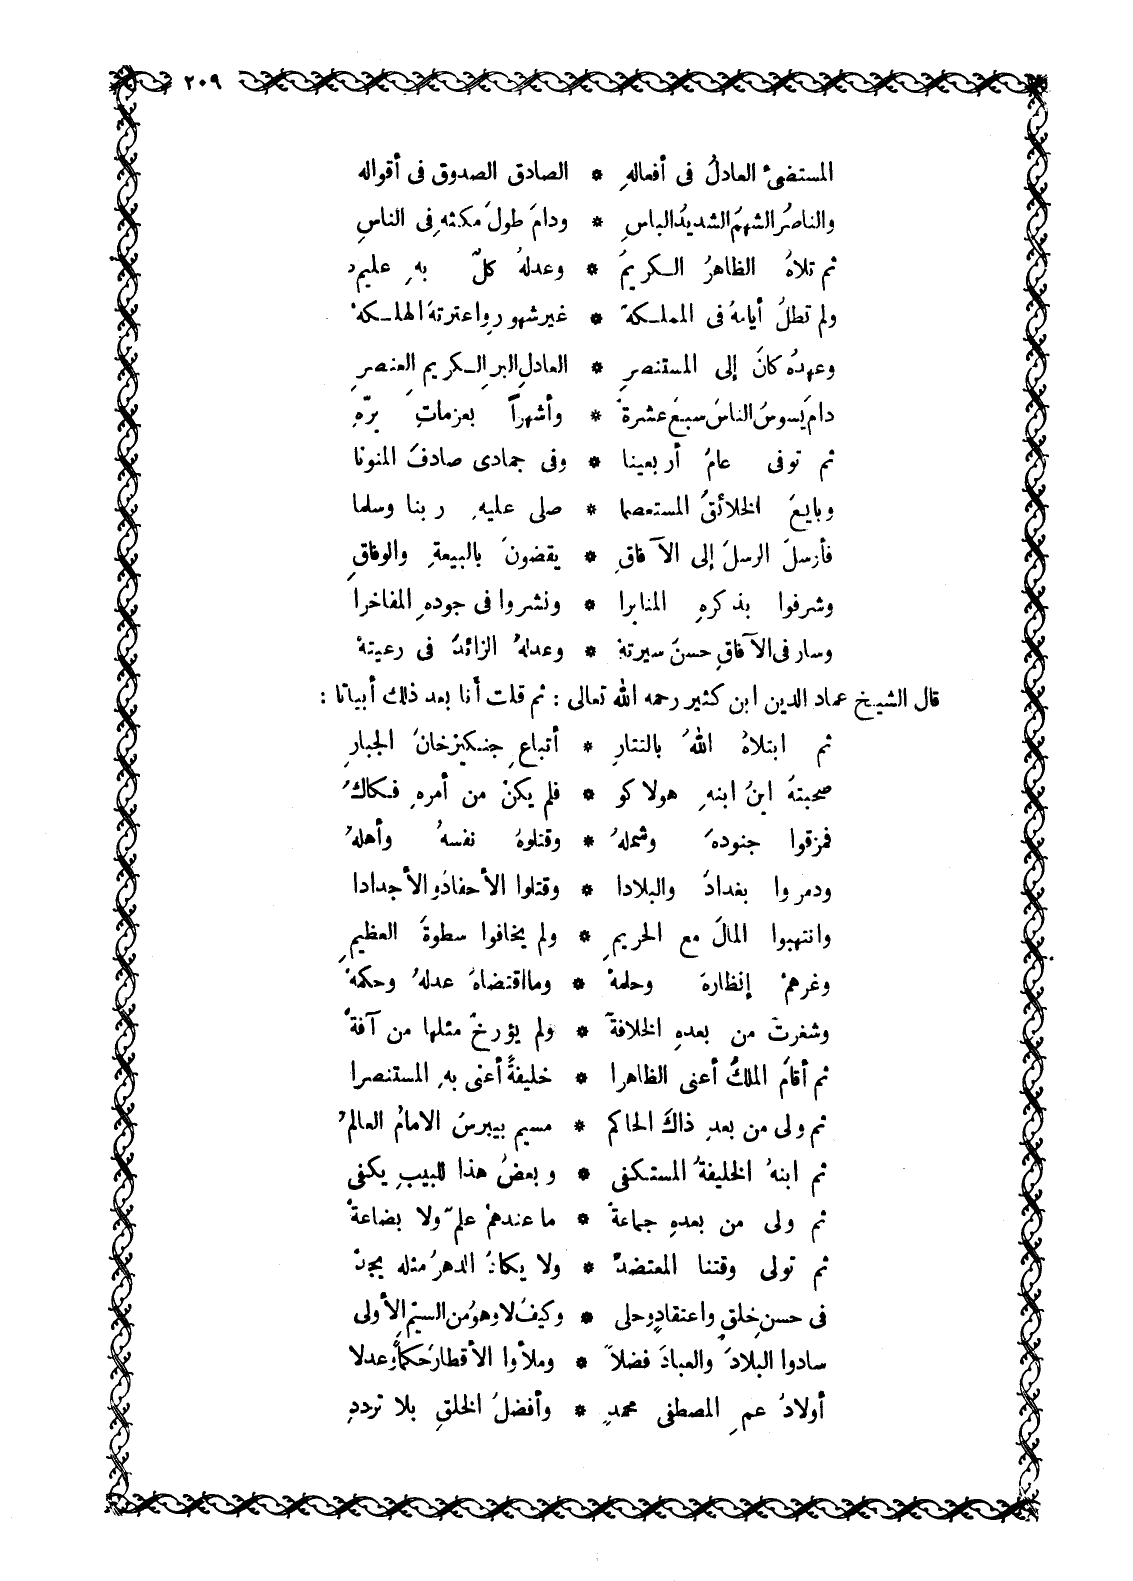 ٢٠٩
المستضئ العادلُ فى أفعالهِ * الصادق الصدوق فى أقواله
والناصرُ الشهمُ الشديدُ الباسِ * ودامَ طولَ مكثهِ فى الناسِ
ثم تلاهُ الظاهرُ الكريمُ * وعدلهُ كلٌّ بهِ عليم
ولم تطلُ أيامهُ فى المملكة * غير شهورٍ واعترتهَ الهلكهْ
وعهدهُ كانَ إلى المستنصرِ * العادلِ البرِ الكريم العنصرِ
دامَ يسوسُ الناسَ سبعَ عشرةَ * وأشهراً بعزماتِ برّهِ
ثم توفى عامَ أربعينا * وفى جمادى صادفَ المنونا
وبايعَ الخلائقُ المستعصما * صلى عليهِ ربنا وسلما
فأرسلَ الرسلَ إلى الآفاقِ * يقضونَ بالبيعةِ والوفاقِ
وشرفوا بذكرهِ المنابرا * ونشروا فى جودهِ المفاخرا
وسار فى الآفاقِ حسنَ سيرتهْ * وعدلهُ الزائدُ فى رعيتهْ
قال الشيخ عماد الدين ابن كثير رحمه الله تعالى : ثم قلت أنا بعد ذلك أبياتا :
ثم ابتلاهُ اللهُ بالتتارِ * أتباعِ جنكيزخانَ الجبارِ
صحبتهَ ابنُ ابنهِ هولاكو * فلم يكنْ من أمرهِ فكاكُ
فمزقوا جنودهَ وشملهُ * وقتلوهُ نفسهُ وأهلهُ
ودمروا بغدادَ والبلادا * وقتلوا الأحفادَ والأجدادا
وانتهبوا المالَ مع الحريمِ * ولم يخافوا سطوةَ العظيمِ
وغرهمْ إنظارهُ وحلمهْ * وما اقتضاهُ عدلهُ وحكمهْ
وشغرتْ من بعدهِ الخلافةْ * ولم يؤرخْ مثلها من آفةْ
ثم أقامَ الملكُ أعنى الظاهرا * خليفةً أعنى بهِ المستنصرا
ثم ولى من بعدِ ذاكَ الحاكم * مسيم بيبرسَ الامامُ العالمُ
ثم ابنهُ الخليفةُ المستكفى * وبعضُ هذا للبيبِ يكفى
ثم ولى من بعدهِ جماعةْ * ما عندهمْ علمٌ ولا بضاعةْ
ثم تولى وقتنا المعتضدْ * ولا يكادُ الدهرُ مثله يجدْ
فى حسنِ خلقٍ واعتقادٍ وحلى * وكيفُ لا وهوُ من السيّمِ الأولى
سادوا البلادَ والعبادَ فضلاً * وملأوا الأقطارَ حكماً وعدلا
أولادُ عمِ المصطفى محمدٍ * وأفضلُ الخلقِ بلا ترددِ